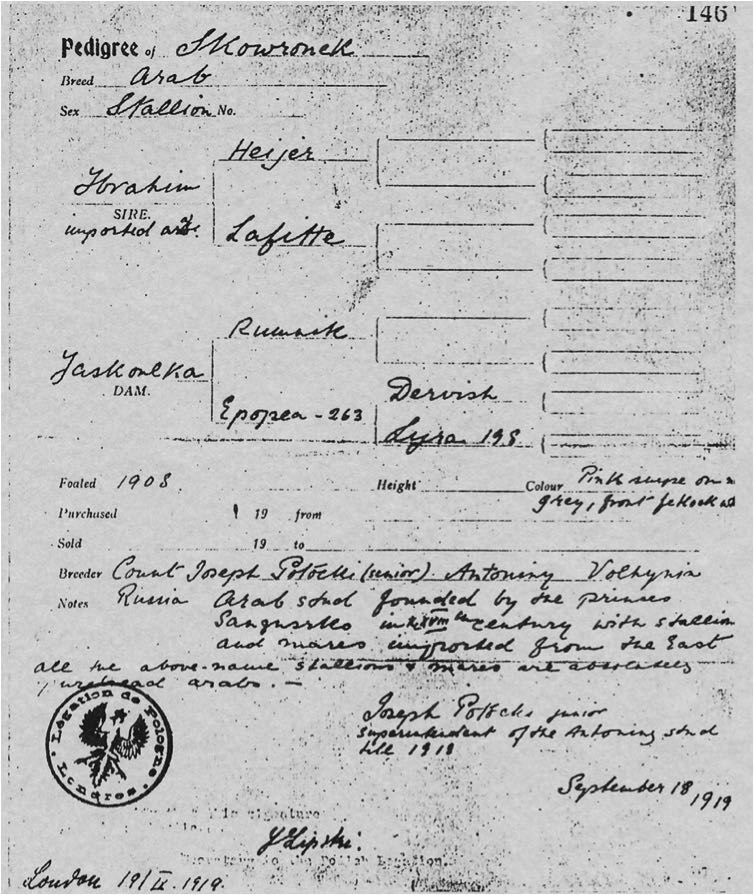 146
Pedigree of Skowronek
Breed Arab
Sex Stallion No.
Heijer
Ibrahim
SIRE.
imported
Lafitte
Rumnik
Jaskoulka
DAM.
Dervish
Epopea - 263
Lyra 198
Foaled 1908 Height Colour Pink snipe on
grey, front fetlock
Purchased 19 from
Sold 19 to
Breeder Count Joseph Potocki (senior). Antoniny Volhynia
Notes Russia Arab stud founded by the princes
Sanguszko in XVIII th century with stallion
and mares imported from the East
all the above-name stallions & mares are absolutely
purebread arabs. —
Joseph Potocki junior
superintendent of the Antoniny stud
till 1918
Legation de Pologne
Londres
September 18, 1919
signature
Y Lipski.
Secretary to the Polish Legation.
London 19/IX.1919.